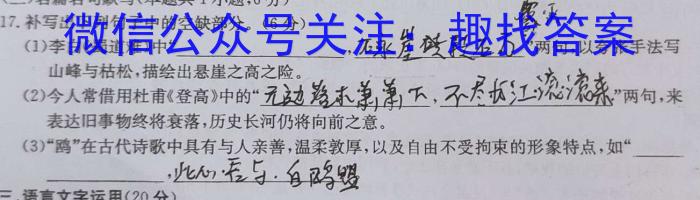 (三)名篇名句默写(本题共1小题,6分)
17.补写出下列句子中的空缺部分。(6分)
微信公众号关注:趣找答案
(1)李白《蜀道难》中“ ”两句,以夸张手法写
山峰与枯松,描绘出悬崖之高之险。
(2)今人常借用杜甫《登高》中的“无边落木萧萧下,不尽长江滚滚来”两句,来
表达旧事物终将衰落,历史长河仍将向前之意。
(3)“鸥”在古代诗歌中具有与人亲善,温柔敦厚,以及自由不受拘束的形象特点,如“
,此心吾与白鸥盟
三、语言文字运用(20分)